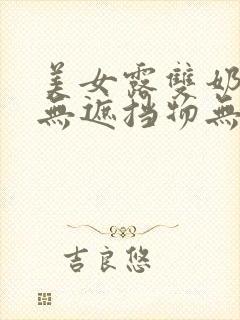 美女露雙奶
無遮挡物無
吉良悠